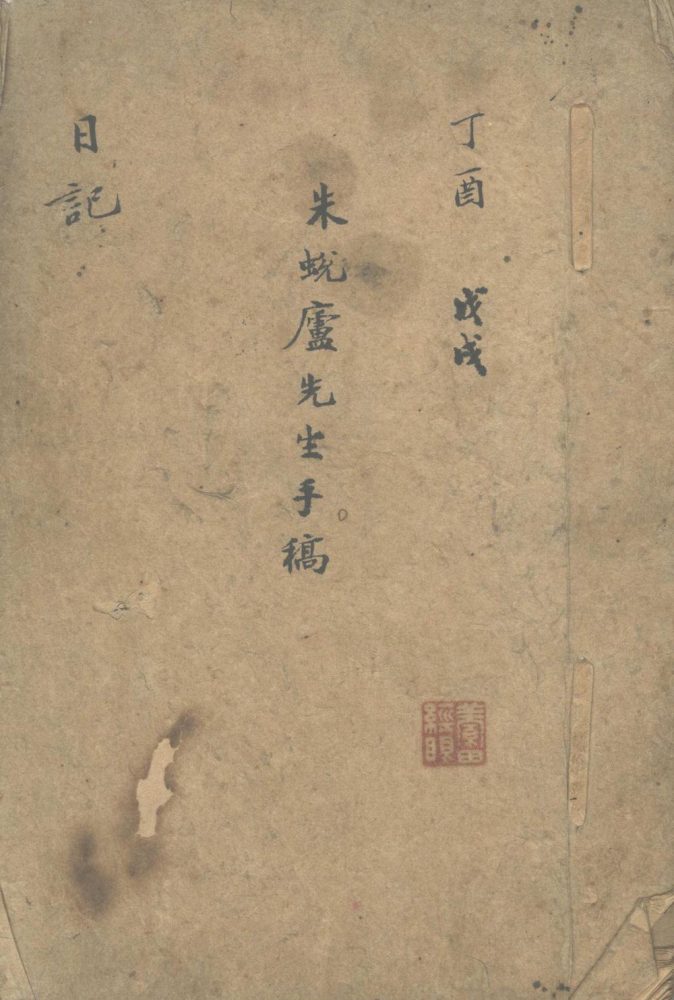 丁酉 戊戌
朱蜕廬先生手稿
日記